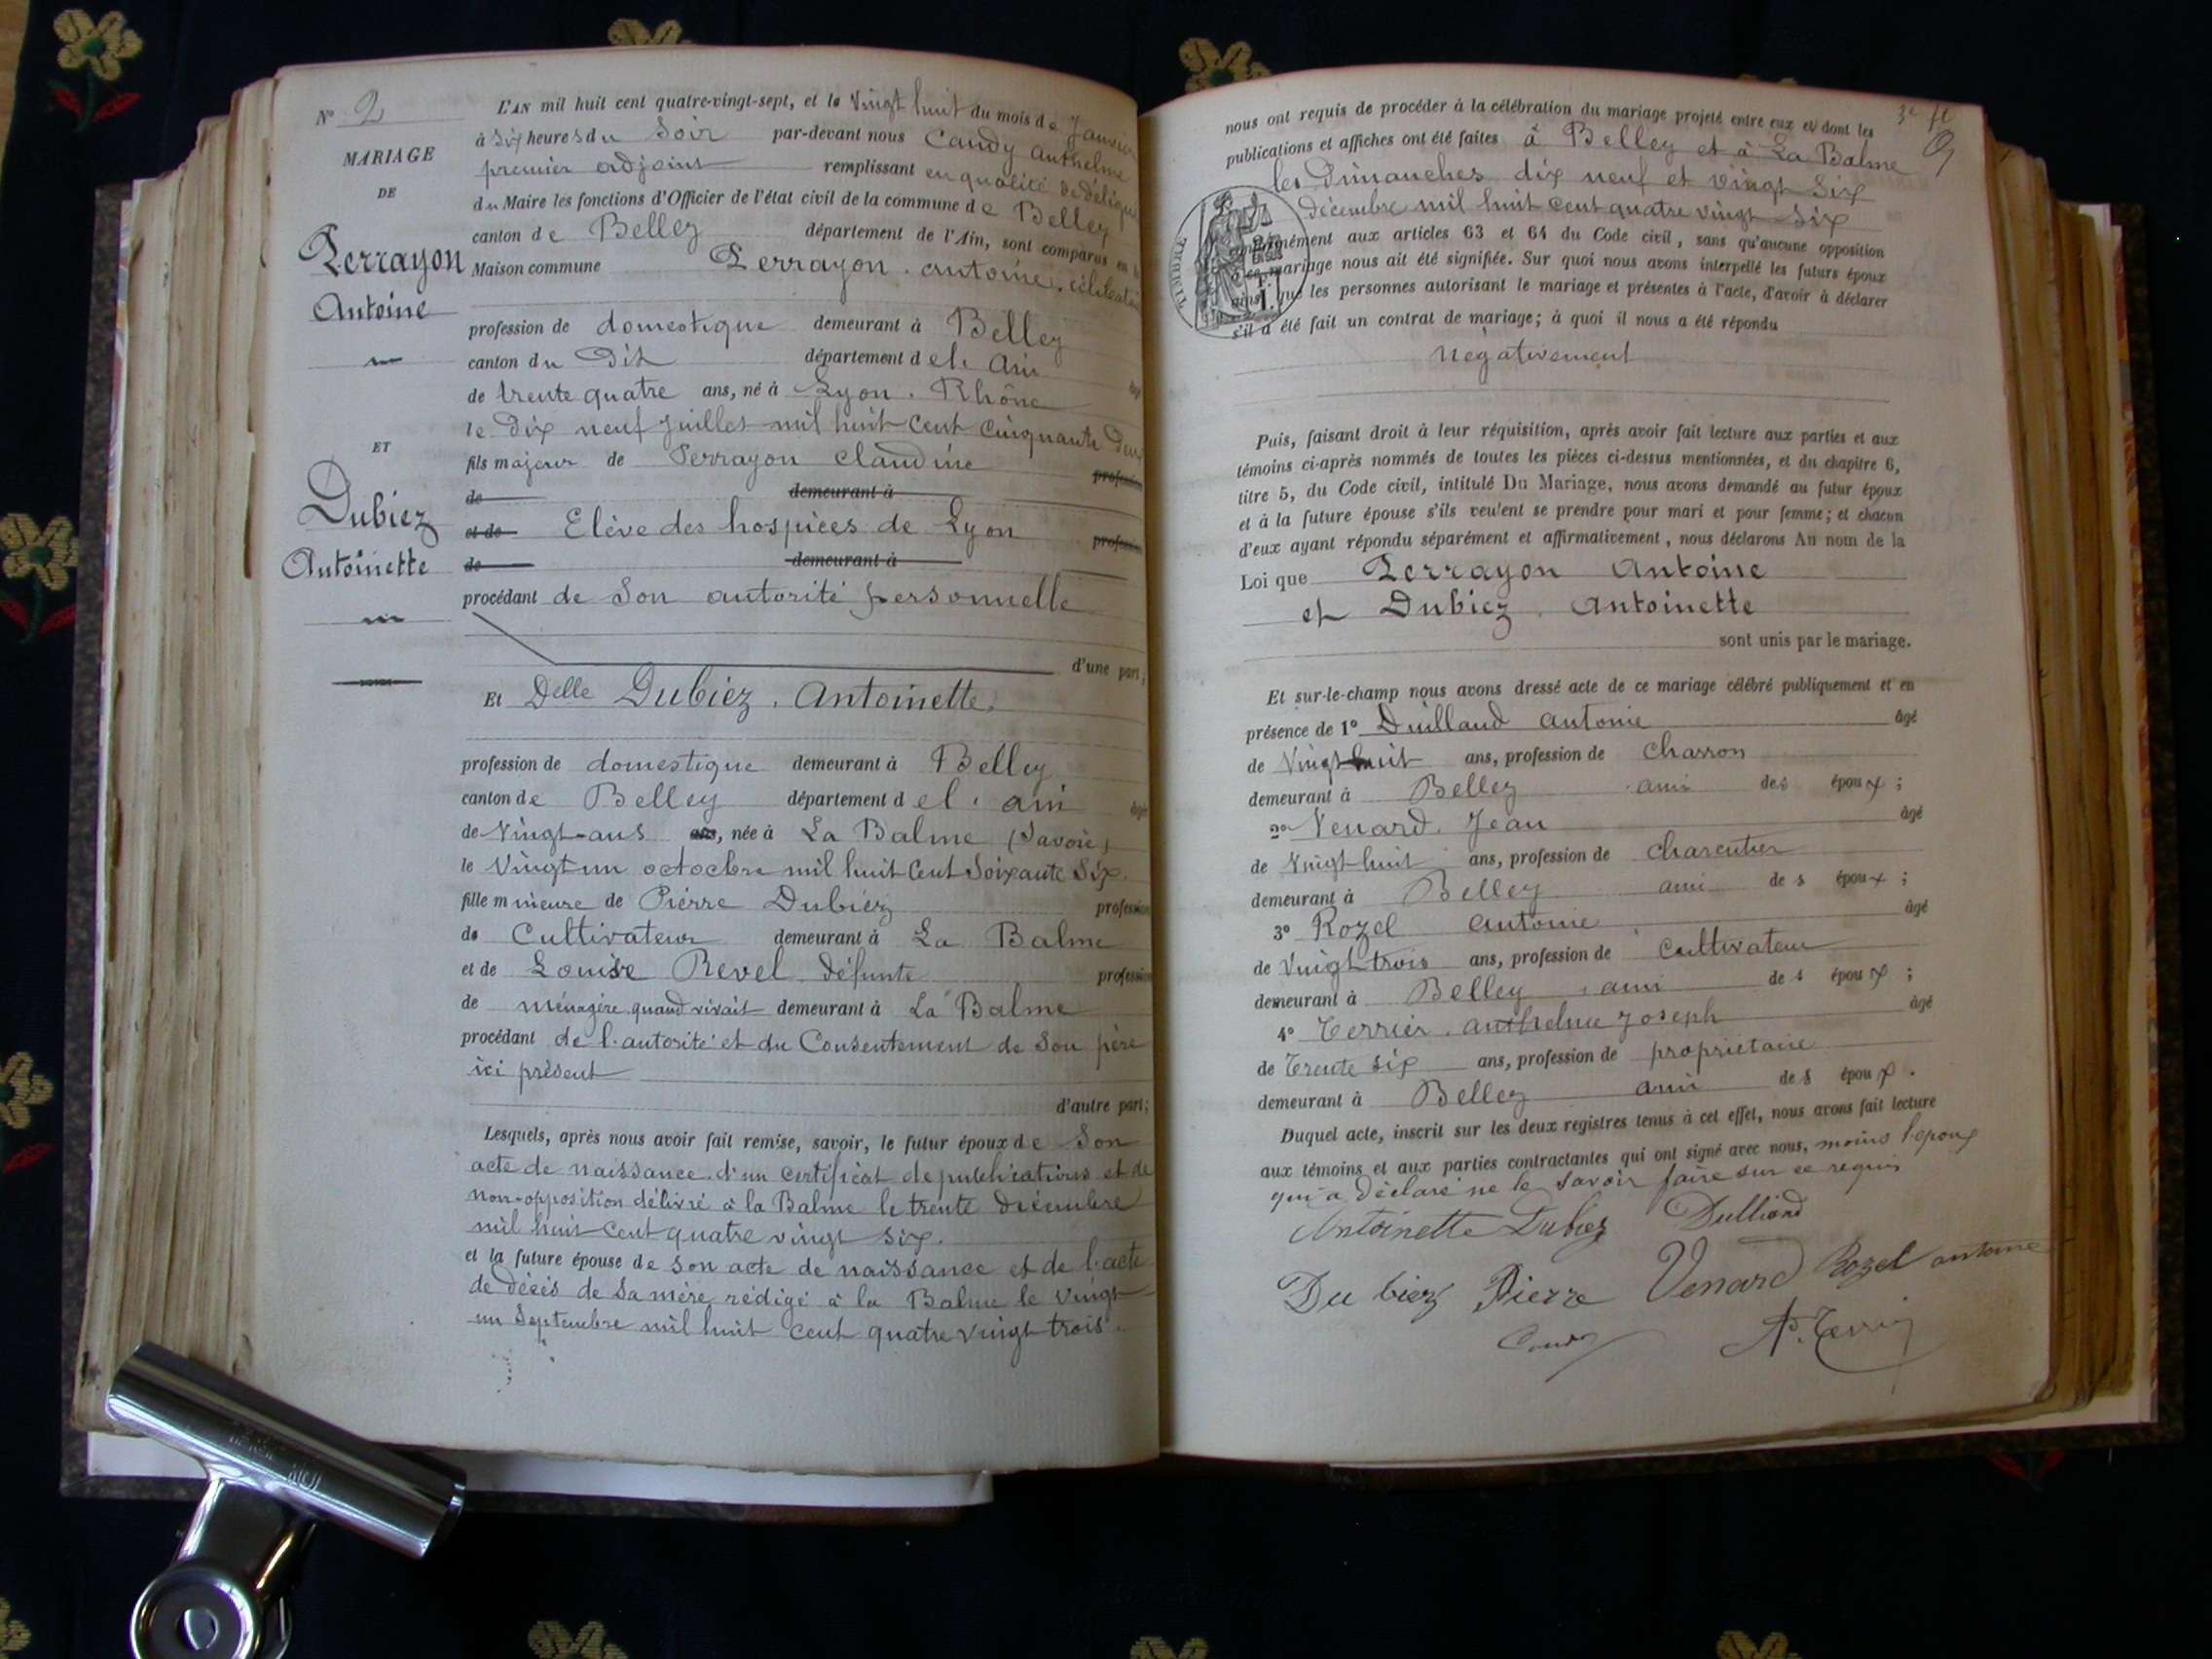 N° 2
MARIAGE
DE
Perrayon
Antoine
ET
Dubiez
Antoinette
L'AN mil huit cent quatre-vingt-sept, et le Vingt huit du mois de Janvier
à six heures du Soir par-devant nous Caudy Anthelme
premier adjoint remplissant en qualité de délégué
du Maire les fonctions d'Officier de l'état civil de la commune de Belley
canton de Belley département de l'Ain, sont comparus en la
Maison commune Perrayon Antoine, célibataire
profession de domestique demeurant à Belley
canton du Dit département de l. Ain âgé
de trente quatre ans, né à Lyon . Rhône
le Dix neuf Juillet mil huit cent Cinquante Deux
fils majeur de Perrayon Claudine profession
de demeurant à
et de Elève des hospices de Lyon profession
de demeurant à
procédant de Son autorité personnelle
d'une part;
Et Delle Dubiez . Antoinette,
profession de domestique demeurant à Belley
canton de Belley département de l. ain âgée
de Vingt-ans ans, née à La Balme (Savoie)
le Vingt un octocbre mil huit Cent Soixante Six.
fille mineure de Pierre Dubiez profession
de Cultivateur demeurant à La Balme
et de Louise Revel défunte profession
de ménagère quand vivait demeurant à La Balme
procédant de l'autorité et du Consentement de Son père
ici présent
d'autre part;
Lesquels, après nous avoir fait remise, savoir, le futur époux de Son
acte de naissance. d'un certificat de publications et de
non-opposition délivré à la Balme le trente Décembre
mil huit cent quatre vingt six.
et la future épouse de son acte de naissance et de l'acte
de décès de Sa mère rédigé à la Balme le Vingt
un Septembre mil huit cent quatre vingt trois.
3e ft
9
nous ont requis de procéder à la célébration du mariage projeté entre eux et dont les
publications et affiches ont été faites à Belley et à La Balme
les Dimanches dix neuf et vingt Six
décembre mil huit cent quatre vingt six
TIMBRE
conformément aux articles 63 et 64 du Code civil, sans qu'aucune opposition
à ce mariage nous ait été signifiée. Sur quoi nous avons interpellé les futurs époux
ainsi que les personnes autorisant le mariage et présentes à l'acte, d'avoir à déclarer
s'il a été fait un contrat de mariage; à quoi il nous a été répondu
négativement
Puis, faisant droit à leur réquisition, après avoir fait lecture aux parties et aux
témoins ci-après nommés de toutes les pièces ci-dessus mentionnées, et du chapitre 6,
titre 5, du Code civil, intitulé Du Mariage, nous avons demandé au futur époux
et à la future épouse s'ils veulent se prendre pour mari et pour femme; et chacun
d'eux ayant répondu séparément et affirmativement, nous déclarons Au nom de la
Loi que Perrayon Antoine
et Dubiez . Antoinette
sont unis par le mariage.
Et sur-le-champ nous avons dressé acte de ce mariage célébré publiquement et en
présence de 1° Duilland Antoine âgé
de Vingt huit ans, profession de Charron
demeurant à Belley ami des époux ;
2° Venard . Jean âgé
de Vingt huit ans, profession de charentier
demeurant à Belley ami des époux ;
3° Rozel Antoine âgé
de Vingt trois ans, profession de Cultivateur
demeurant à Belley ami des époux ;
4° Terrier . Anthelme Joseph âgé
de Trente six ans, profession de propriétaire
demeurant à Belley ami des époux .
Duquel acte, inscrit sur les deux registres tenus à cet effet, nous avons fait lecture
aux témoins et aux parties contractantes qui ont signé avec nous, moins l'époux
qui a déclaré ne le savoir faire sur ce requis
Antoinette Dubiez Dulliand
Du biez Pierre Venard Rozel antoine